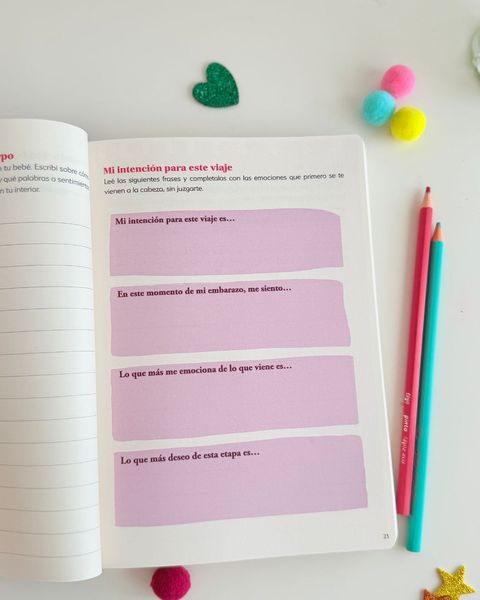 rpo
n tu bebé. Escribí sobre cómo
y qué palabras o sentimientos
n tu interior.
Mi intención para este viaje
Leé las siguientes frases y completalas con las emociones que primero se te
vienen a la cabeza, sin juzgarte.
Mi intención para este viaje es...
En este momento de mi embarazo, me siento...
Lo que más me emociona de lo que viene es...
Lo que más deseo de esta etapa es...
23